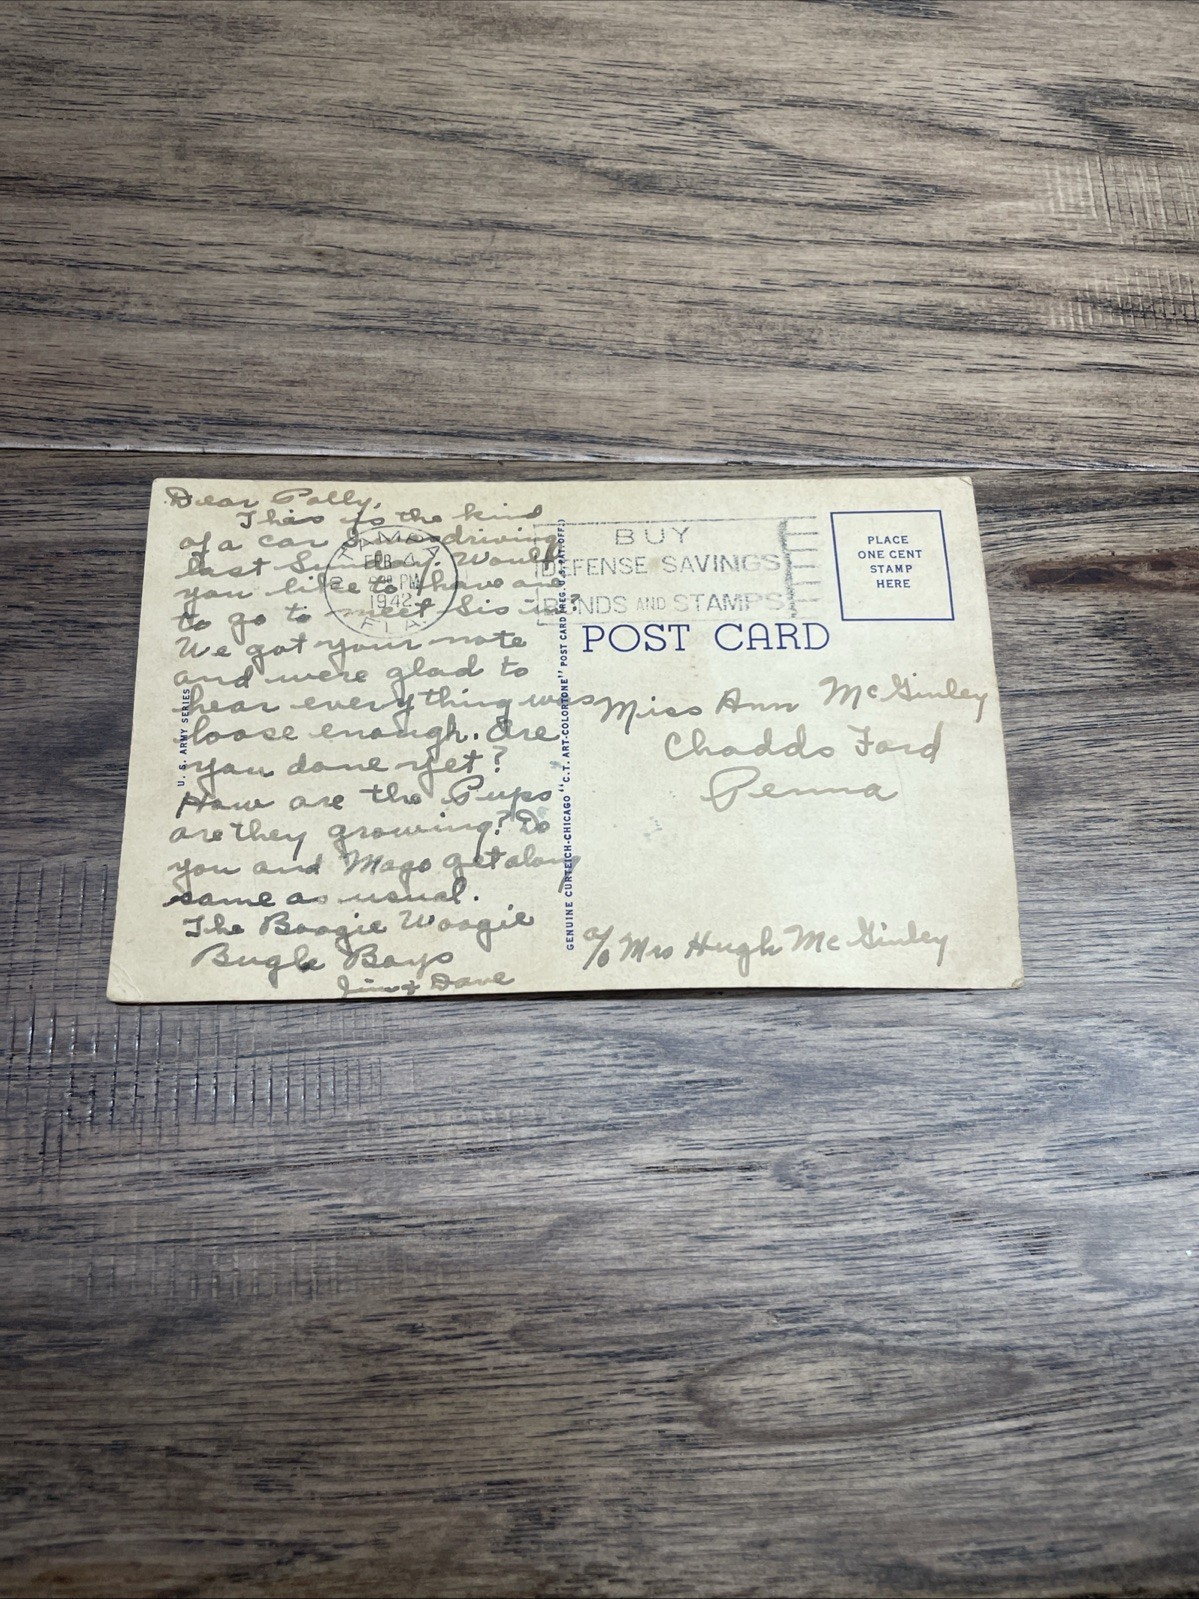 Dear Polly,
This is the kind
of a car I was driving
last Sunday. Would
you like to have one
to go to meet Sis in?
We got your note
and were glad to
hear everything was
loose enough. Are
you done yet?
How are the Pups
are they growing? Do
you and Mago get along
same as usual.
The Boogie Woogie
Bugle Boys
Jim & Dave
U. S. ARMY SERIES
TAMPA
FEB 4
PM
1942
FLA.
BUY
DEFENSE SAVINGS
BONDS AND STAMPS
GENUINE CURTEICH-CHICAGO "C.T. ART-COLORTONE" POST CARD (REG. U.S. PAT. OFF.)
POST CARD
PLACE
ONE CENT
STAMP
HERE
Miss Ann McGinley
Chadds Ford
Penna
c/o Mrs Hugh McGinley